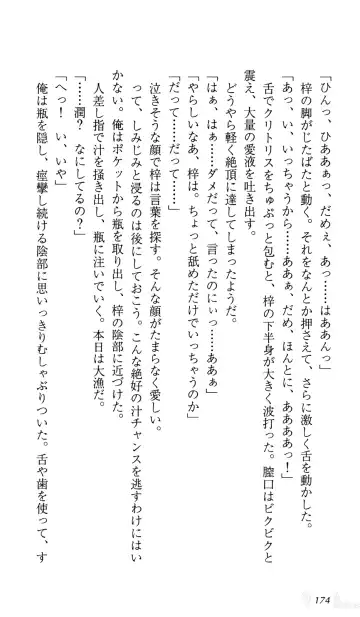 「ひんっ、ひああぁっ、だめぇ、あっ……はああんっ」
梓の脚がじたばたと動く。それをなんとか押さえて、さらに激しく舌を動かした。
「あっ、い、いっちゃうから……ああぁ、だめ、ほんとに、ああああっ！」
舌でクリトリスをちゅぷっと包むと、梓の下半身が大きく波打った。膣口はピクピクと
震え、大量の愛液を吐き出す。
どうやら軽く絶頂に達してしまったようだ。
「はぁ、はぁ……ダメだって、言ったのにぃっ……ああぁ」
「やらしいなあ、梓は。ちょっと舐めただけでいっちゃうのか」
「だって……だって……」
泣きそうな顔で梓は言葉を探す。そんな顔がたまらなく愛しい。
って、しみじみと浸るのは後にしておこう。こんな絶好の汁チャンスを逃すわけにはい
かない。俺はポケットから瓶を取り出し、梓の陰部に近づけた。
人差し指で汁を掻き出し、瓶に注いでいく。本日は大漁だ。
「……潤？　なにしてるの？」
「へっ！　い、いや」
俺は瓶を隠し、痙攣し続ける陰部に思いっきりむしゃぶりついた。舌や歯を使って、す
174